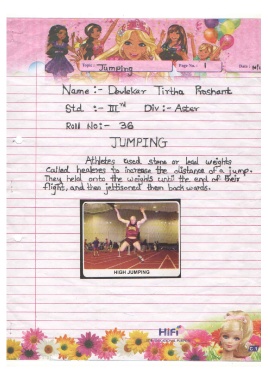 Topic : Jumping Page No.: 1 Date :
Name :- Devlekar Tirtha Roshant
Std :- III rd Div :- Aster
Roll No:- 36
JUMPING
Athletes used stone or lead weights
Called healeres to increase the distance of a jump.
They held onto the weights until the end of their
flight, and then jettisoned them back words.
HIGH JUMPING
HiFi